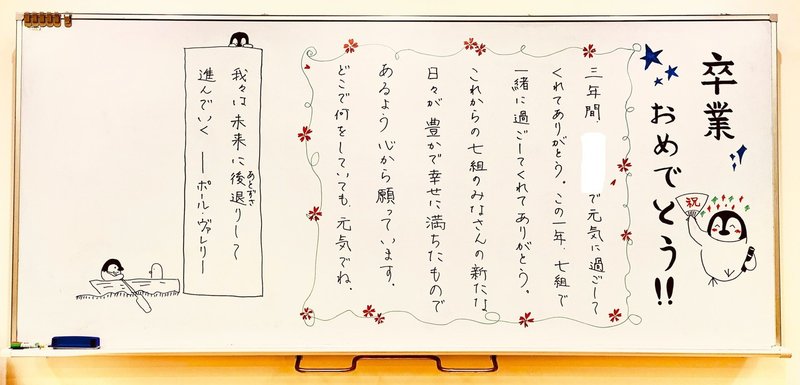 卒業
おめでとう!!
祝
三年間 で元気に過ごして
くれてありがとう。この一年、七組で
一緒に過ごしてくれてありがとう。
これからの七組のみなさんの新たな
日々が豊かで幸せに満ちたもので
あるよう心から願っています。
どこで何をしていても、元気でね。
我々は未来に後退りして
あとずさ
進んでいく ――ポール・ヴァレリー